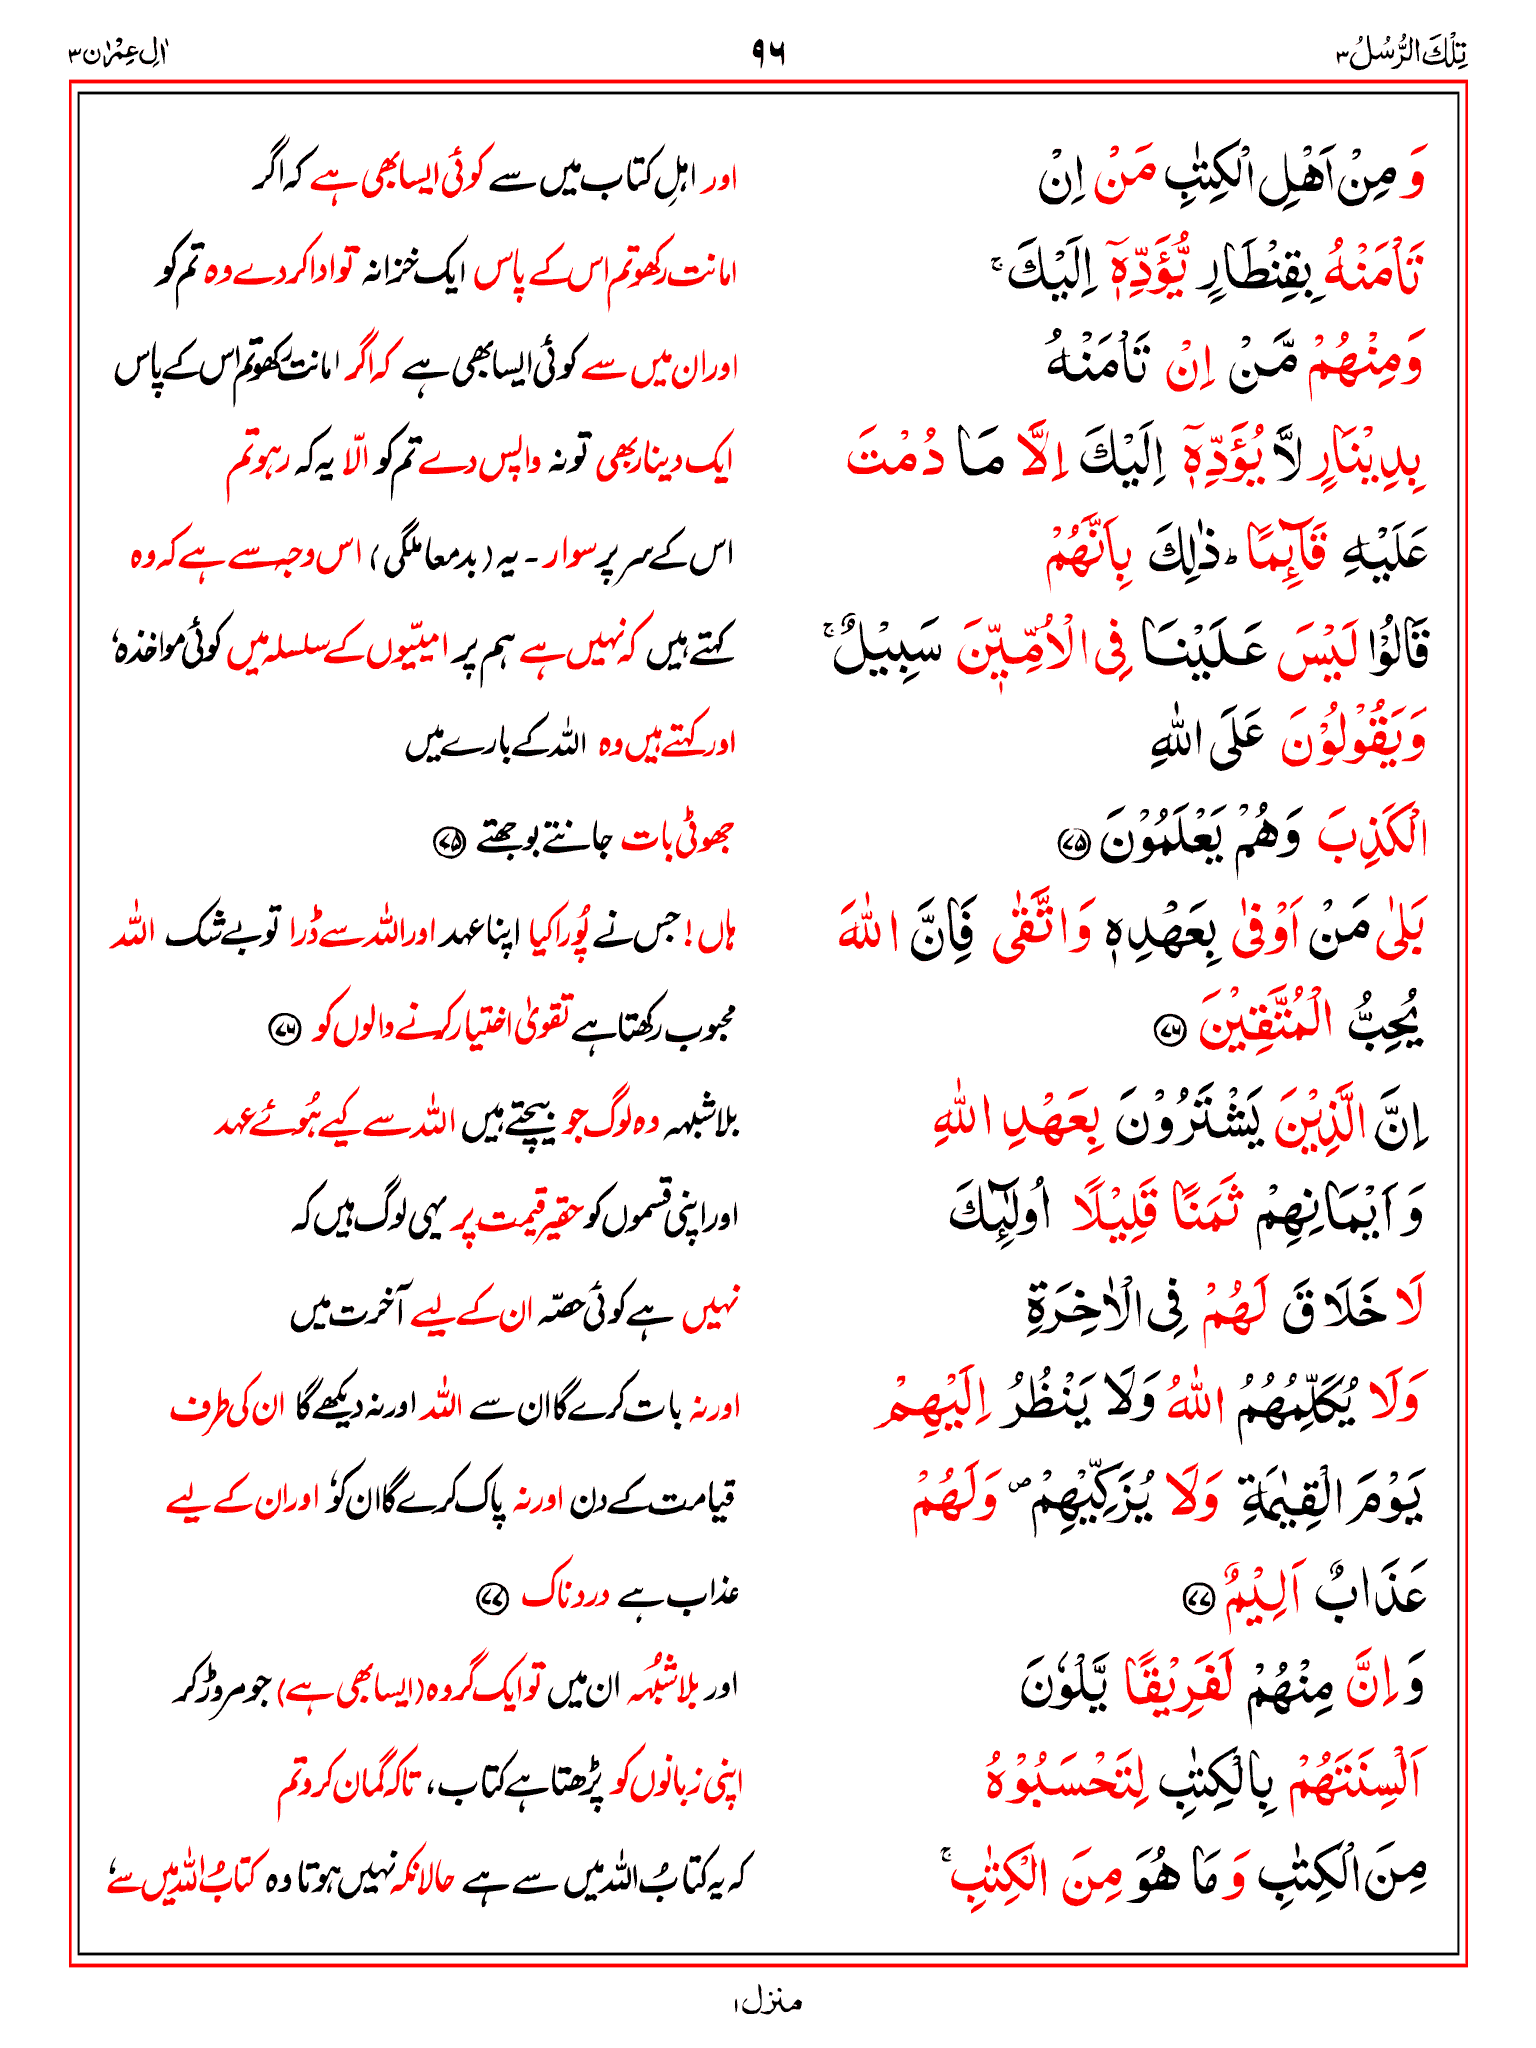 تِلْكَ الرُّسُلُ ۳ ۹۶ اٰلِ عِمْرٰن ۳
وَ مِنْ اَهْلِ الْكِتٰبِ مَنْ اِنْ اور اہلِ کتاب میں سے کوئی ایسا بھی ہے کہ اگر
تَاْمَنْهُ بِقِنْطَارٍ يُّؤَدِّهٖٓ اِلَيْكَ ۚ امانت رکھو تم اس کے پاس ایک خزانہ تو ادا کر دے وہ تم کو
وَمِنْهُمْ مَّنْ اِنْ تَاْمَنْهُ اور ان میں سے کوئی ایسا بھی ہے کہ اگر امانت رکھو تم اس کے پاس
بِدِيْنَارٍ لَّا يُؤَدِّهٖٓ اِلَيْكَ اِلَّا مَا دُمْتَ ایک دینار بھی تو نہ واپس دے تم کو الّا یہ کہ رہو تم
عَلَيْهِ قَآئِمًا ؕ ذٰلِكَ بِاَنَّهُمْ اس کے سر پر سوار ۔ یہ (بدمعاملگی) اس وجہ سے ہے کہ وہ
قَالُوْا لَيْسَ عَلَيْنَا فِى الْاُمِّيّٖنَ سَبِيْلٌ ۚ کہتے ہیں کہ نہیں ہے ہم پر امیّیوں کے سلسلہ میں کوئی مواخذہ ،
وَيَقُوْلُوْنَ عَلَى اللّٰهِ اور کہتے ہیں وہ اللہ کے بارے میں
الْكَذِبَ وَهُمْ يَعْلَمُوْنَ ﴿۷۵﴾ جھوٹی بات جانتے بوجھتے ﴿۷۵﴾
بَلٰى مَنْ اَوْفٰى بِعَهْدِهٖ وَاتَّقٰى فَاِنَّ اللّٰهَ ہاں! جس نے پُورا کیا اپنا عہد اور اللہ سے ڈرا تو بے شک اللہ
يُحِبُّ الْمُتَّقِيْنَ ﴿۷۶﴾ محبوب رکھتا ہے تقویٰ اختیار کرنے والوں کو ﴿۷۶﴾
اِنَّ الَّذِيْنَ يَشْتَرُوْنَ بِعَهْدِ اللّٰهِ بلاشبہہ وہ لوگ جو بیچتے ہیں اللہ سے کیے ہُوئے عہد
وَ اَيْمَانِهِمْ ثَمَنًا قَلِيْلًا اُولٰٓئِكَ اور اپنی قسموں کو حقیر قیمت پر یہی لوگ ہیں کہ
لَا خَلَاقَ لَهُمْ فِى الْاٰخِرَةِ نہیں ہے کوئی حصّہ ان کے لیے آخرت میں
وَلَا يُكَلِّمُهُمُ اللّٰهُ وَلَا يَنْظُرُ اِلَيْهِمْ اور نہ بات کرے گا ان سے اللہ اور نہ دیکھے گا ان کی طرف
يَوْمَ الْقِيٰمَةِ وَلَا يُزَكِّيْهِمْ ۪ وَلَهُمْ قیامت کے دن اور نہ پاک کرے گا ان کو ، اور ان کے لیے
عَذَابٌ اَلِيْمٌ ﴿۷۷﴾ عذاب ہے دردناک ﴿۷۷﴾
وَ اِنَّ مِنْهُمْ لَفَرِيْقًا يَّلْوٗنَ اور بلاشُبہُہ ان میں تو ایک گروہ (ایسا بھی ہے) جو مروڑ کر
اَلْسِنَتَهُمْ بِالْكِتٰبِ لِتَحْسَبُوْهُ اپنی زبانوں کو پڑھتا ہے کتاب، تاکہ گمان کرو تم
مِنَ الْكِتٰبِ وَ مَا هُوَ مِنَ الْكِتٰبِ ۚ کہ یہ کتابُ اللہ میں سے ہے حالانکہ نہیں ہوتا وہ کتابُ اللہ میں سے ،
منزل ۱